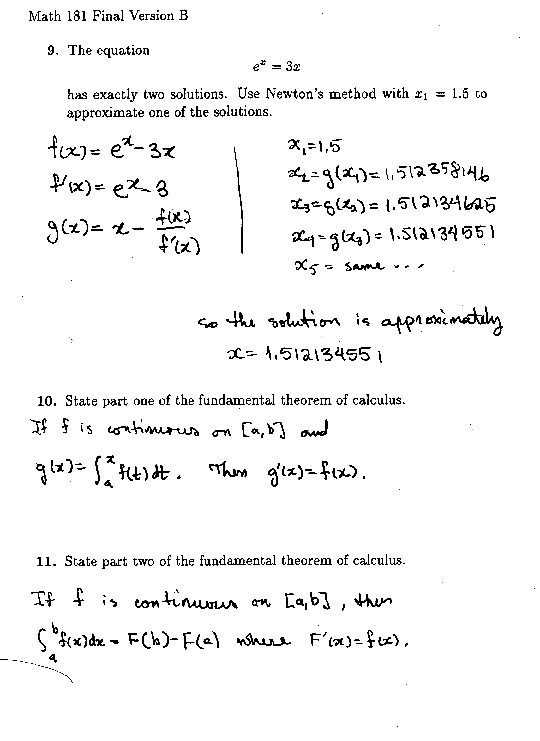 Math 181 Final Version B
9. The equation
e^x = 3x
has exactly two solutions. Use Newton's method with x₁ = 1.5 to
approximate one of the solutions.
f(x) = e^x - 3x
f'(x) = e^x - 3
g(x) = x - f(x)/f'(x)
x₁ = 1.5
x₂ = g(x₁) = 1.512358146
x₃ = g(x₂) = 1.512134625
x₄ = g(x₃) = 1.512134551
x₅ = same ...
so the solution is approximately
x = 1.512134551
10. State part one of the fundamental theorem of calculus.
If f is continuous on [a,b] and
g(x) = ∫ₐˣ f(t)dt. Then g'(x) = f(x).
11. State part two of the fundamental theorem of calculus.
If f is continuous on [a,b], then
∫ₐᵇ f(x)dx = F(b) - F(a) where F'(x) = f(x).